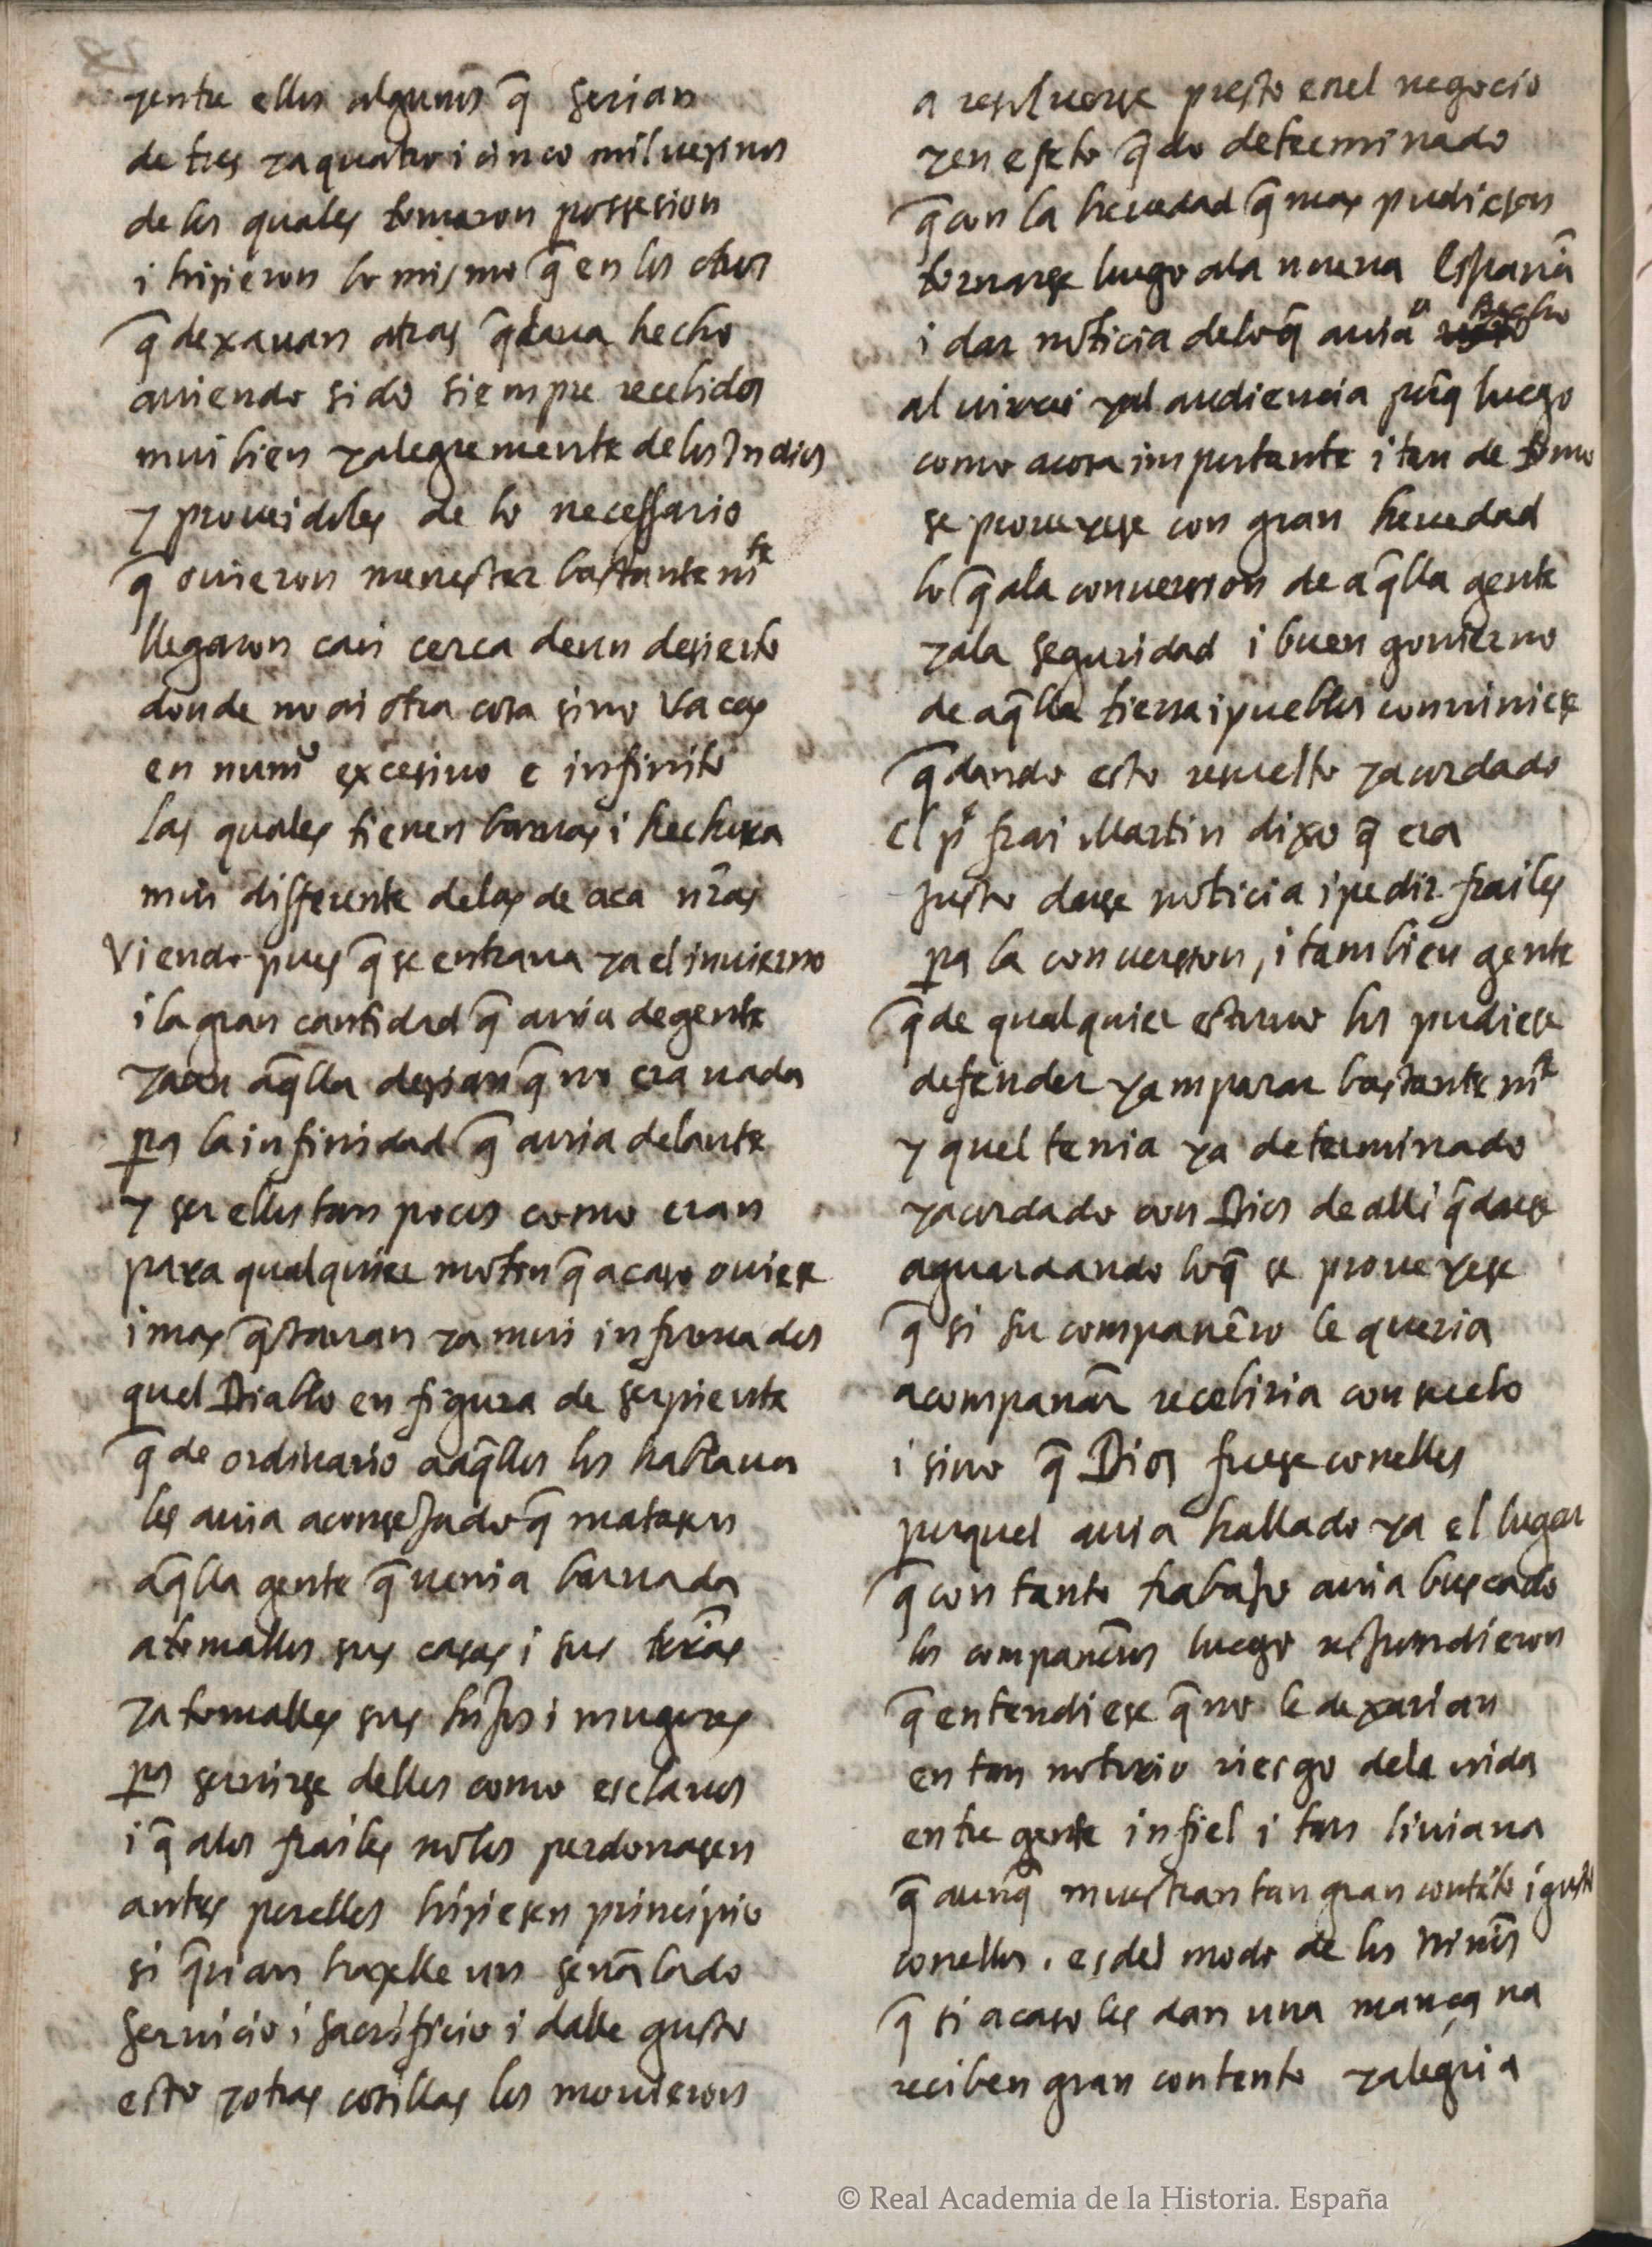 yentre ellos algunos q̃ serian
de tres ya quatro i cinco mil uezinos
de los quales tomaron possesion
i hizieron lo mismo q̃ en los otros
q̃ dexauan atras q̃daua hecho
auiendo sido siempre recebidos
mui bien yalegremente de los Indios
y proueidoles de lo necessario
q̃ ouieron menester bastante mte
llegaron casi cerca deun desierto
donde no ai otra cosa sino Vacas
en numo excesiuo e infinito
las quales tienen baruas i hechura
mui differente delas de aca nr̃as
Viendo pues q̃ se entraua ya el inuierno
i la gran cantidad q̃ auia de gente
yaun aq̃lla dezian q̃ no era nada
pa la infinidad q̃ auia delante
y ser ellos tan pocos como eran
para qualquier motin q̃ acaso ouiese
i mas q̃stauan ya mui informados
quel Diablo en figura de serpiente
q̃ de ordinario aaq̃llos los hablaua
les auia aconsejado q̃ matasen
aq̃lla gente q̃ uenia baruada
a tomallos sus casas i sus teřas
ya tomalles sus hijos i mugeres
pa seruirse dellos como esclauos
i q̃ alos frailes nolos perdonasen
antes porellos hiziesen principio
si q̃rian hazelle un señalado
seruicio i sacrificio i dalle gusto
esto yotras cosillas los mouieron
a resoluerse presto enel negocio
yen efeto q̃do determinado
q̃ con la breuedad q̃ mas pudiesen
tornarse luego ala nueua España
i dar noticia deloq̃ auiã hecho
al uirrei yal audiencia porq̃ luego
como acosa importante i tan de tomo
se proueyese con gran breuedad
lo q̃ ala conuersion de aq̃lla gente
yala seguridad i buen gouierno
de aq̃lla tierra i pueblos conuiniese
q̃dando esto resuelto yacordado
el pe frai Martin dixo q̃ era
justo darse noticia i pedir frailes
pa la conuersion, i tambien gente
q̃ de qualquier estoruo los pudiese
defender yamparar bastante mte
y quel tenia ya determinado
yacordado con Dios de alli q̃darse
aguardando loq̃ se proueyese
q̃ si su compañero le queria
acompañar recebiria consuelo
i sino q̃ Dios fuese conellos
porquel auia hallado ya el lugar
q̃ con tanto trabajo auia buscado
los compañeros luego respondieron
q̃ entendiese q̃ no le dexarian
en tan notorio riesgo dela uida
entre gente infiel i tan liuiana
q̃ aunq̃ muestran tan gran contẽto i gusto
conellos. es del modo de los niños
q̃ si acaso les dan una mançana
reciben gran contento yalegria
© Real Academia de la Historia. España